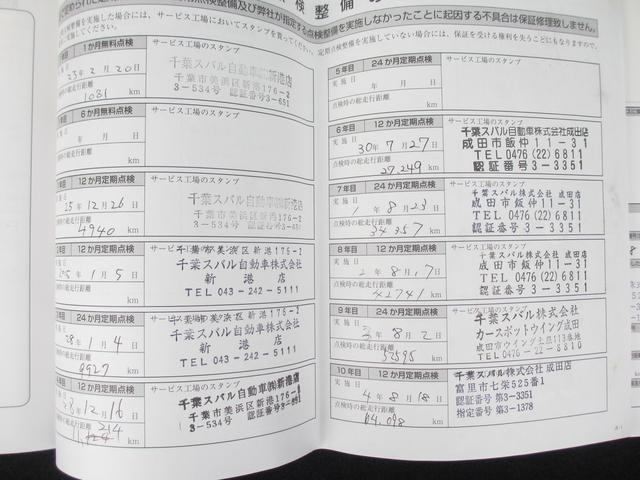 定期点検整備及び弊社が指定する点検整備を実施しなかったことに起因する不具合は保証修理致しません。
整備を実施した場合には、サービス工場においてスタンプを貰ってください。
定期点検整備を実施していない場合には、保証を受ける権利を失うこともなりますので、
1か月無料点検 サービス工場のスタンプ
23年2月20日
1031 km
千葉スバル自動車㈱新港店
千葉市美浜区新港176-2
3-534号 認証番号3-651
6か月無料点検 サービス工場のスタンプ
年 月 日
点検時の総走行距離
km
12か月定期点検 サービス工場のスタンプ
25年12月26日
点検時の総走行距離
4940 km
千葉スバル自動車㈱新港店
千葉市美浜区新港176-2
3-534号 認証番号3-651
24か月定期点検
1月5日
km
千葉市美浜区新港176-2
千葉スバル自動車株式会社
新港店
TEL 043-242-5111
24か月定期点検
28年1月4日
9927 km
千葉市美浜区新港176-2
千葉スバル自動車株式会社
新港店
TEL 043-242-5111
12か月定期点検 サービス工場のスタンプ
12月16日
km
千葉スバル自動車㈱新港店
千葉市美浜区新港176-2
3-534号 認証番号3-651
5年目 24か月定期点検 サービス工場のスタンプ
実施日
年 月 日
点検時の総走行距離
km
6年目 12か月定期点検 サービス工場のスタンプ
実施日
30年7月27日
点検時の総走行距離
27,249 km
千葉スバル自動車株式会社成田店
成田市飯仲11-31
TEL0476(22)6811
認証番号3-3351
7年目 24か月定期点検 サービス工場のスタンプ
実施日
1年8月23日
点検時の総走行距離
34357 km
千葉スバル株式会社 成田店
成田市飯仲11-31
TEL 0476(22)6811
認証番号 3-3351
8年目 12か月定期点検 サービス工場のスタンプ
実施日
2年8月17日
点検時の総走行距離
42741 km
千葉スバル株式会社 成田店
成田市飯仲11-31
TEL 0476(22)6811
認証番号 3-3351
9年目 24か月定期点検 サービス工場のスタンプ
実施日
8月2日
点検時の総走行距離
52595 km
千葉スバル株式会社
カースポットウイング成田
成田市ウイング土屋113番地
TEL0476-22-8810
10年目 12か月定期点検 サービス工場のスタンプ
実施日
4年8月18日
点検時の総走行距離
64,098 km
千葉スバル株式会社 成田店
富里市七栄525番1
認証番号 第3-3351
指定番号 第3-1378